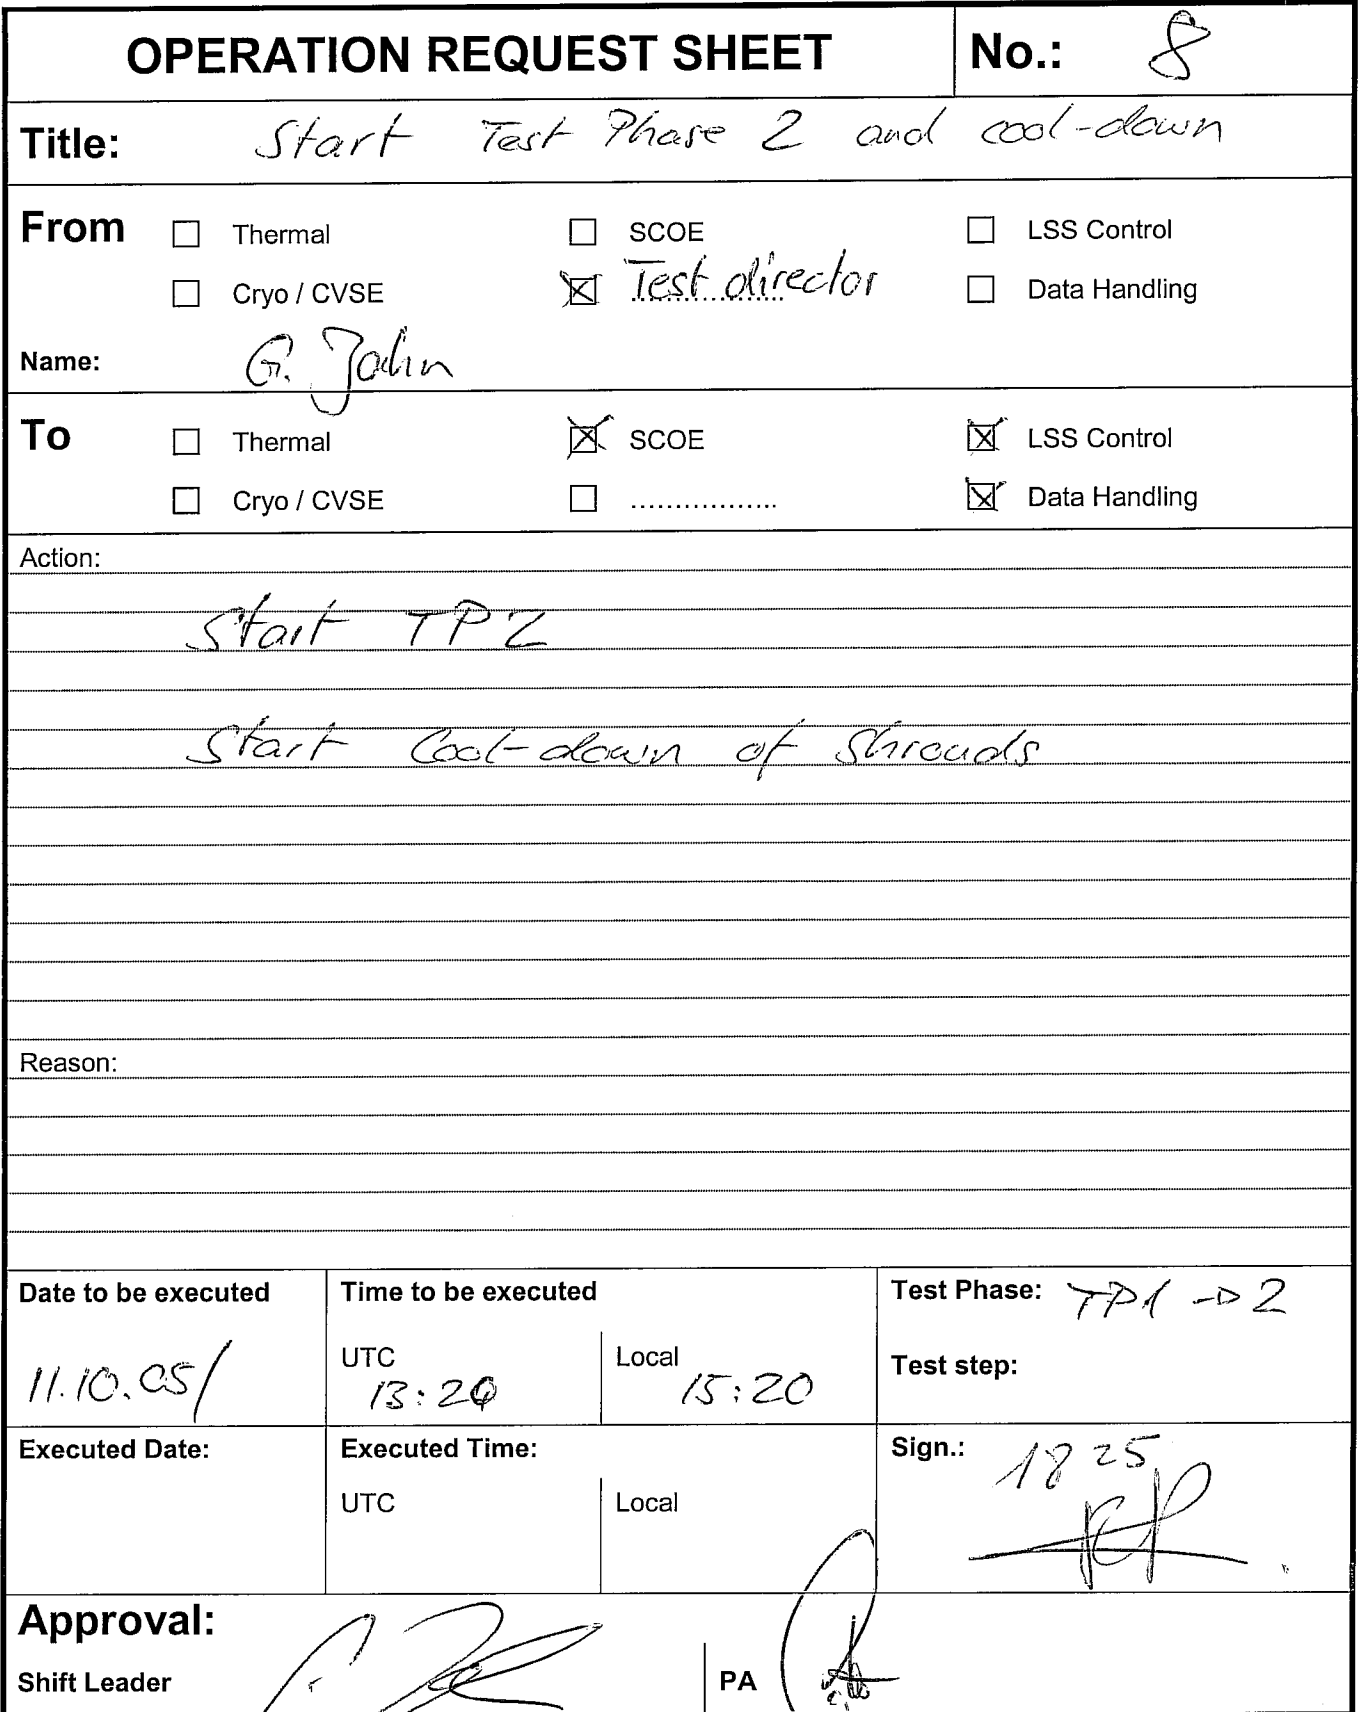 OPERATION REQUEST SHEET No.: 8
Title: Start Test Phase 2 and cool-down
From Thermal SCOE LSS Control
Cryo / CVSE Test director Data Handling
Name: G. Jahn
To Thermal SCOE LSS Control
Cryo / CVSE ................. Data Handling
Action:
Start TP2
Start Cool-down of Shrouds
Reason:
Date to be executed Time to be executed Test Phase: TP1 → 2
UTC Local Test step:
11.10.05/ 13:20 15:20
Executed Date: Executed Time: Sign.: 18 25
UTC Local
Approval:
Shift Leader PA